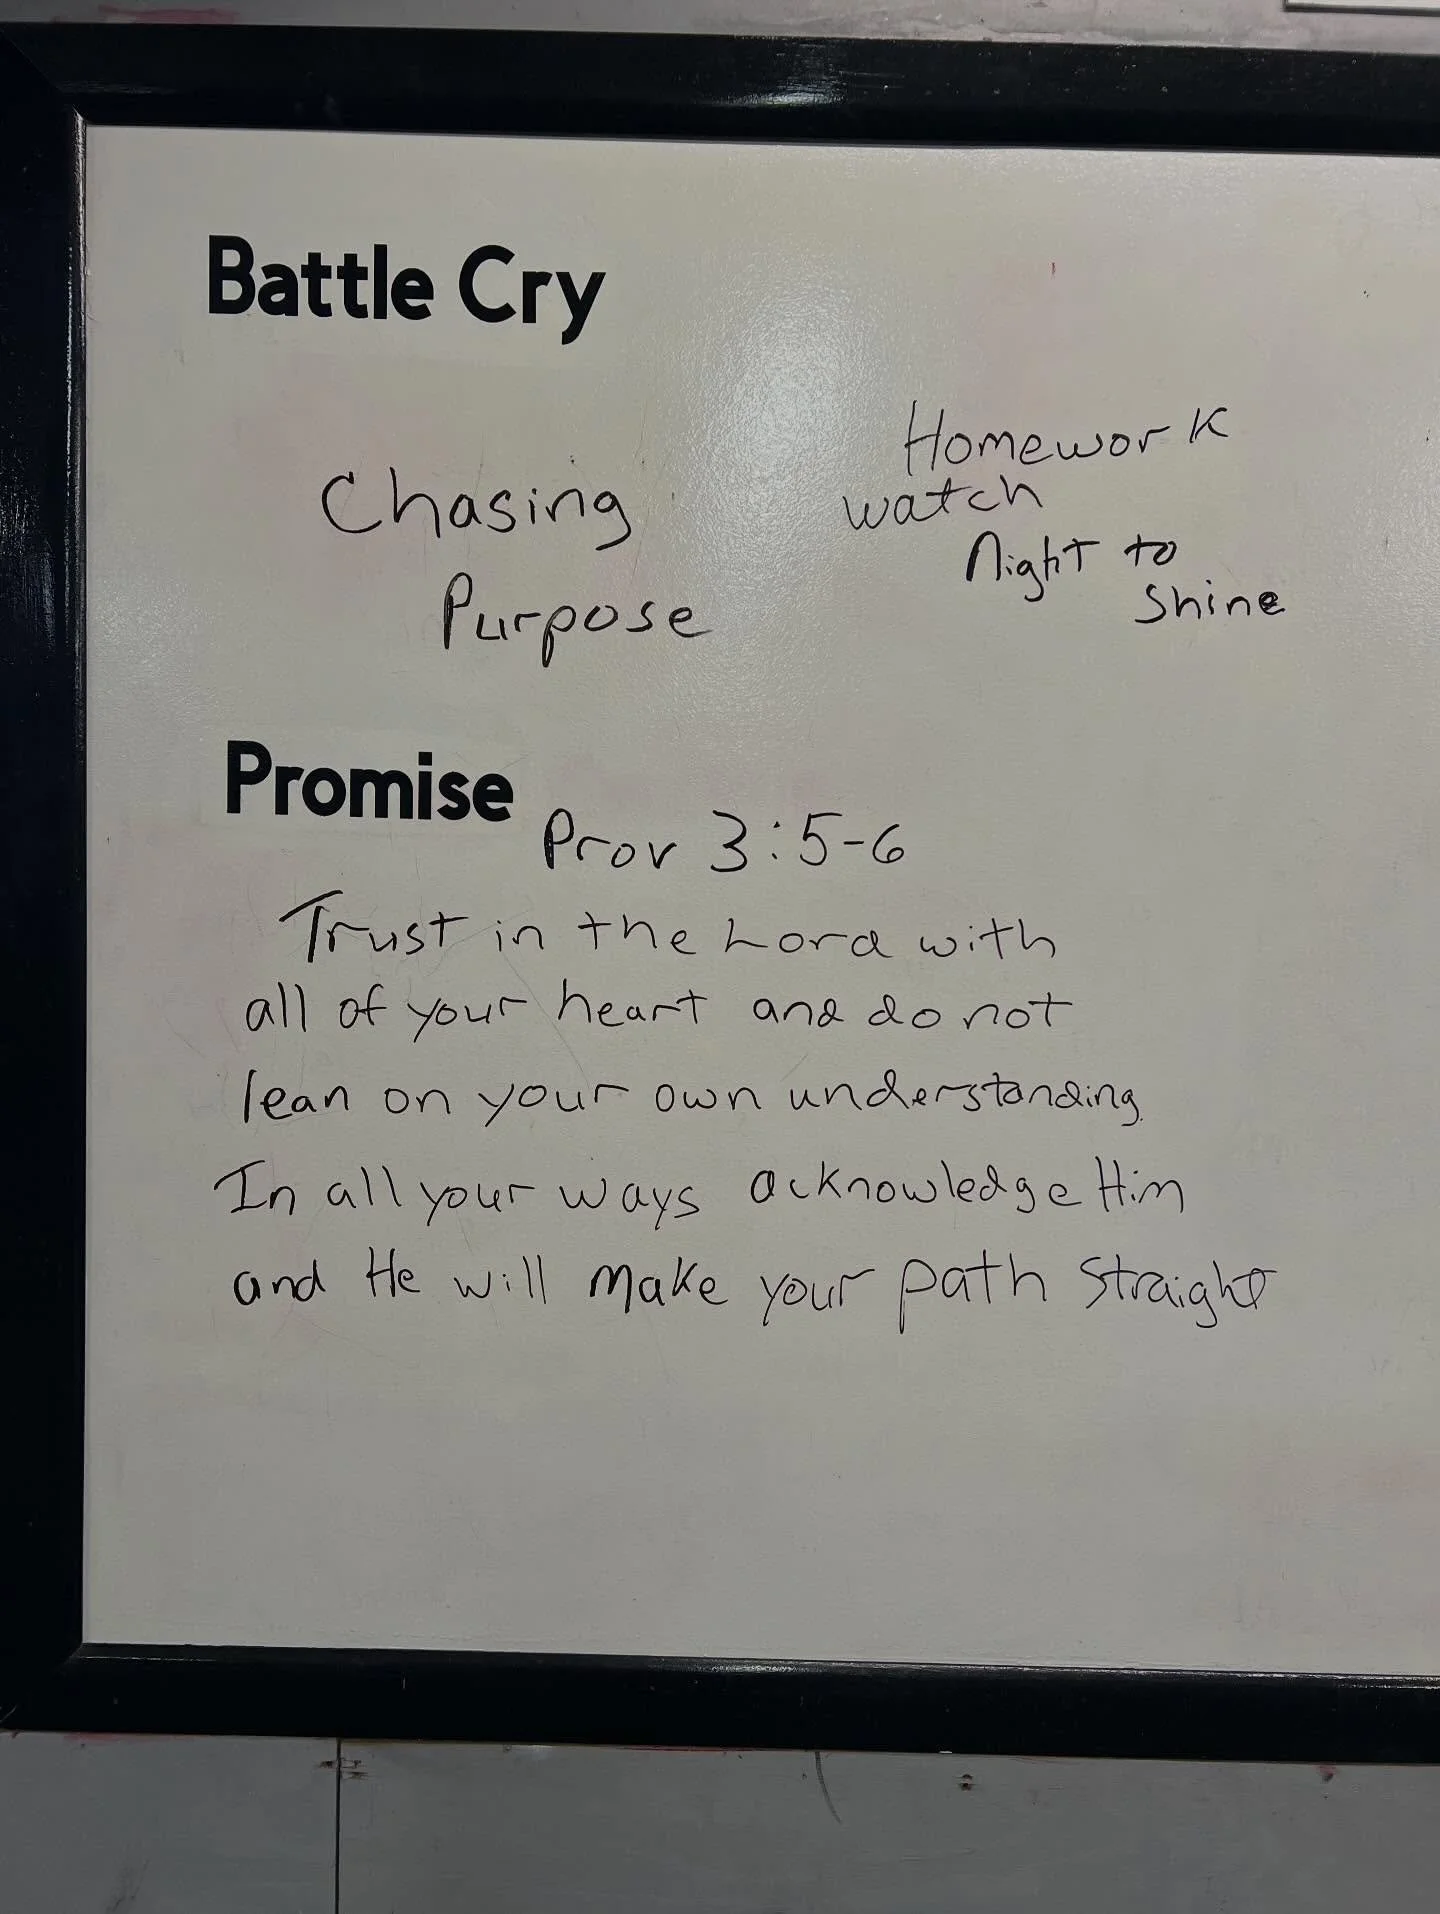 Battle Cry
Chasing
Purpose
Homework
watch
Night to
Shine
Promise
Prov 3:5-6
Trust in the Lord with
all of your heart and do not
lean on your own understanding.
In all your ways acknowledge Him
and He will make your path straight